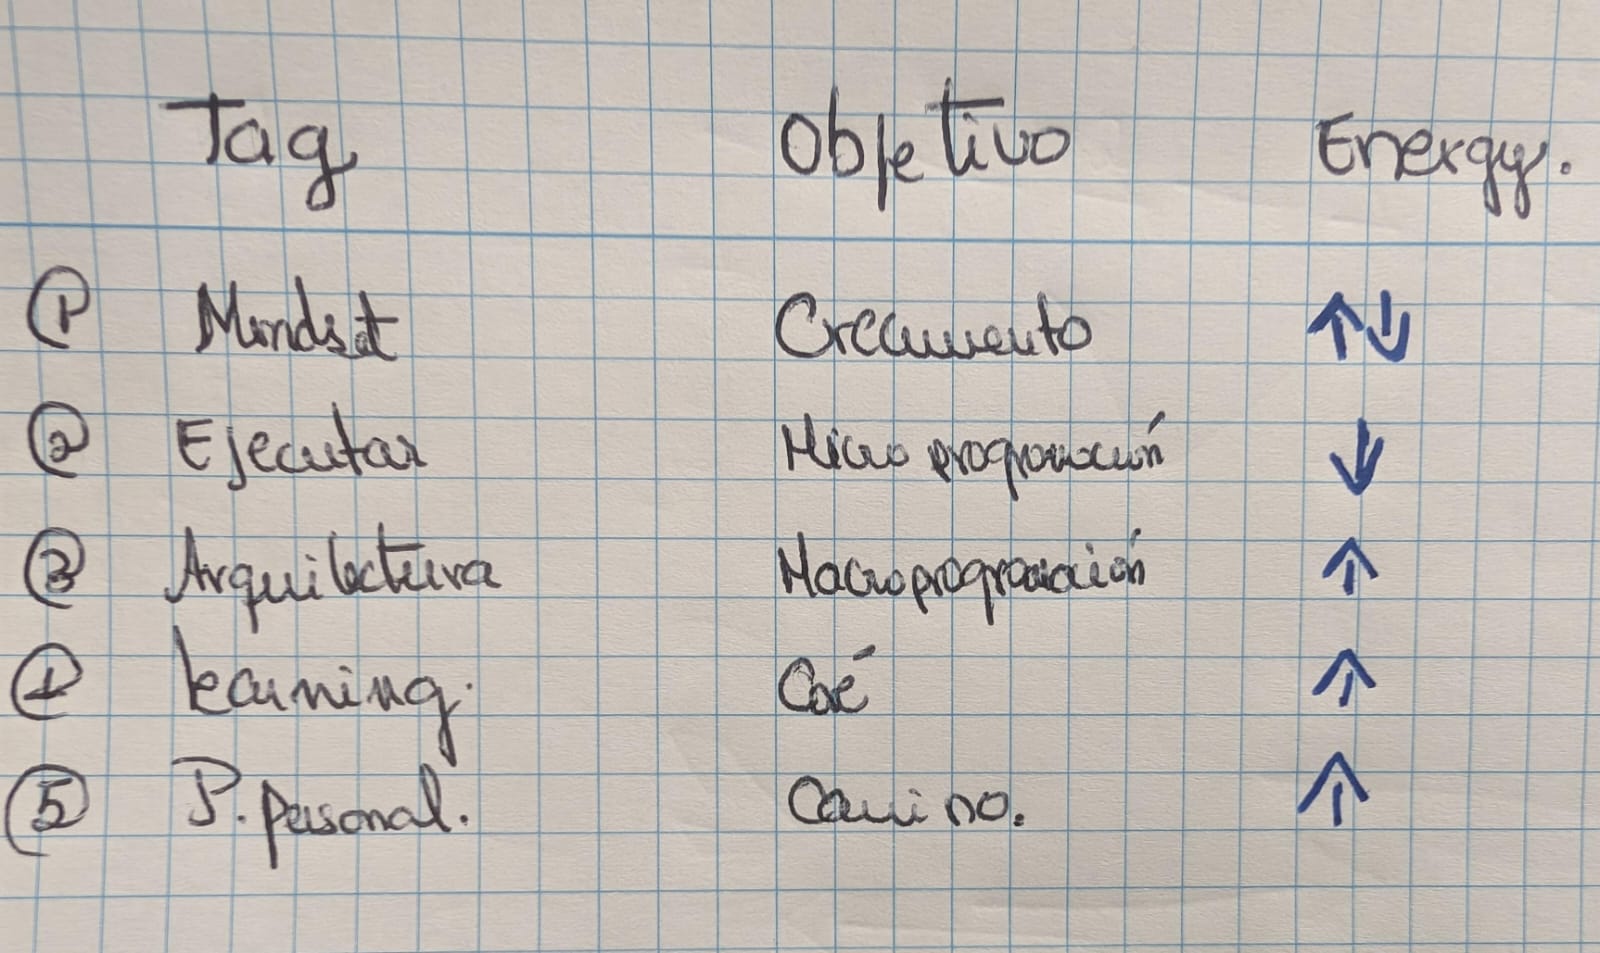 Tag Objetivo Energy.
① Mindset Crecimiento ↑↓
② Ejecutar Micro programación ↓
③ Arquitectura Macroprogramación ↑
④ Learning. ↑
⑤ P. personal. Camino. ↑